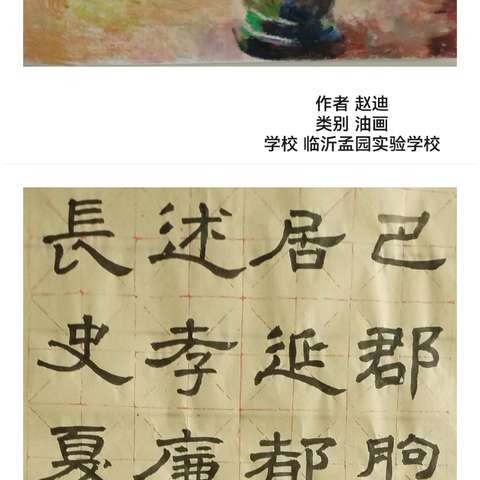 作者 赵迪
类别 油画
学校 临沂孟园实验学校
巴郡朐
居延都
述孝廉
長史夏